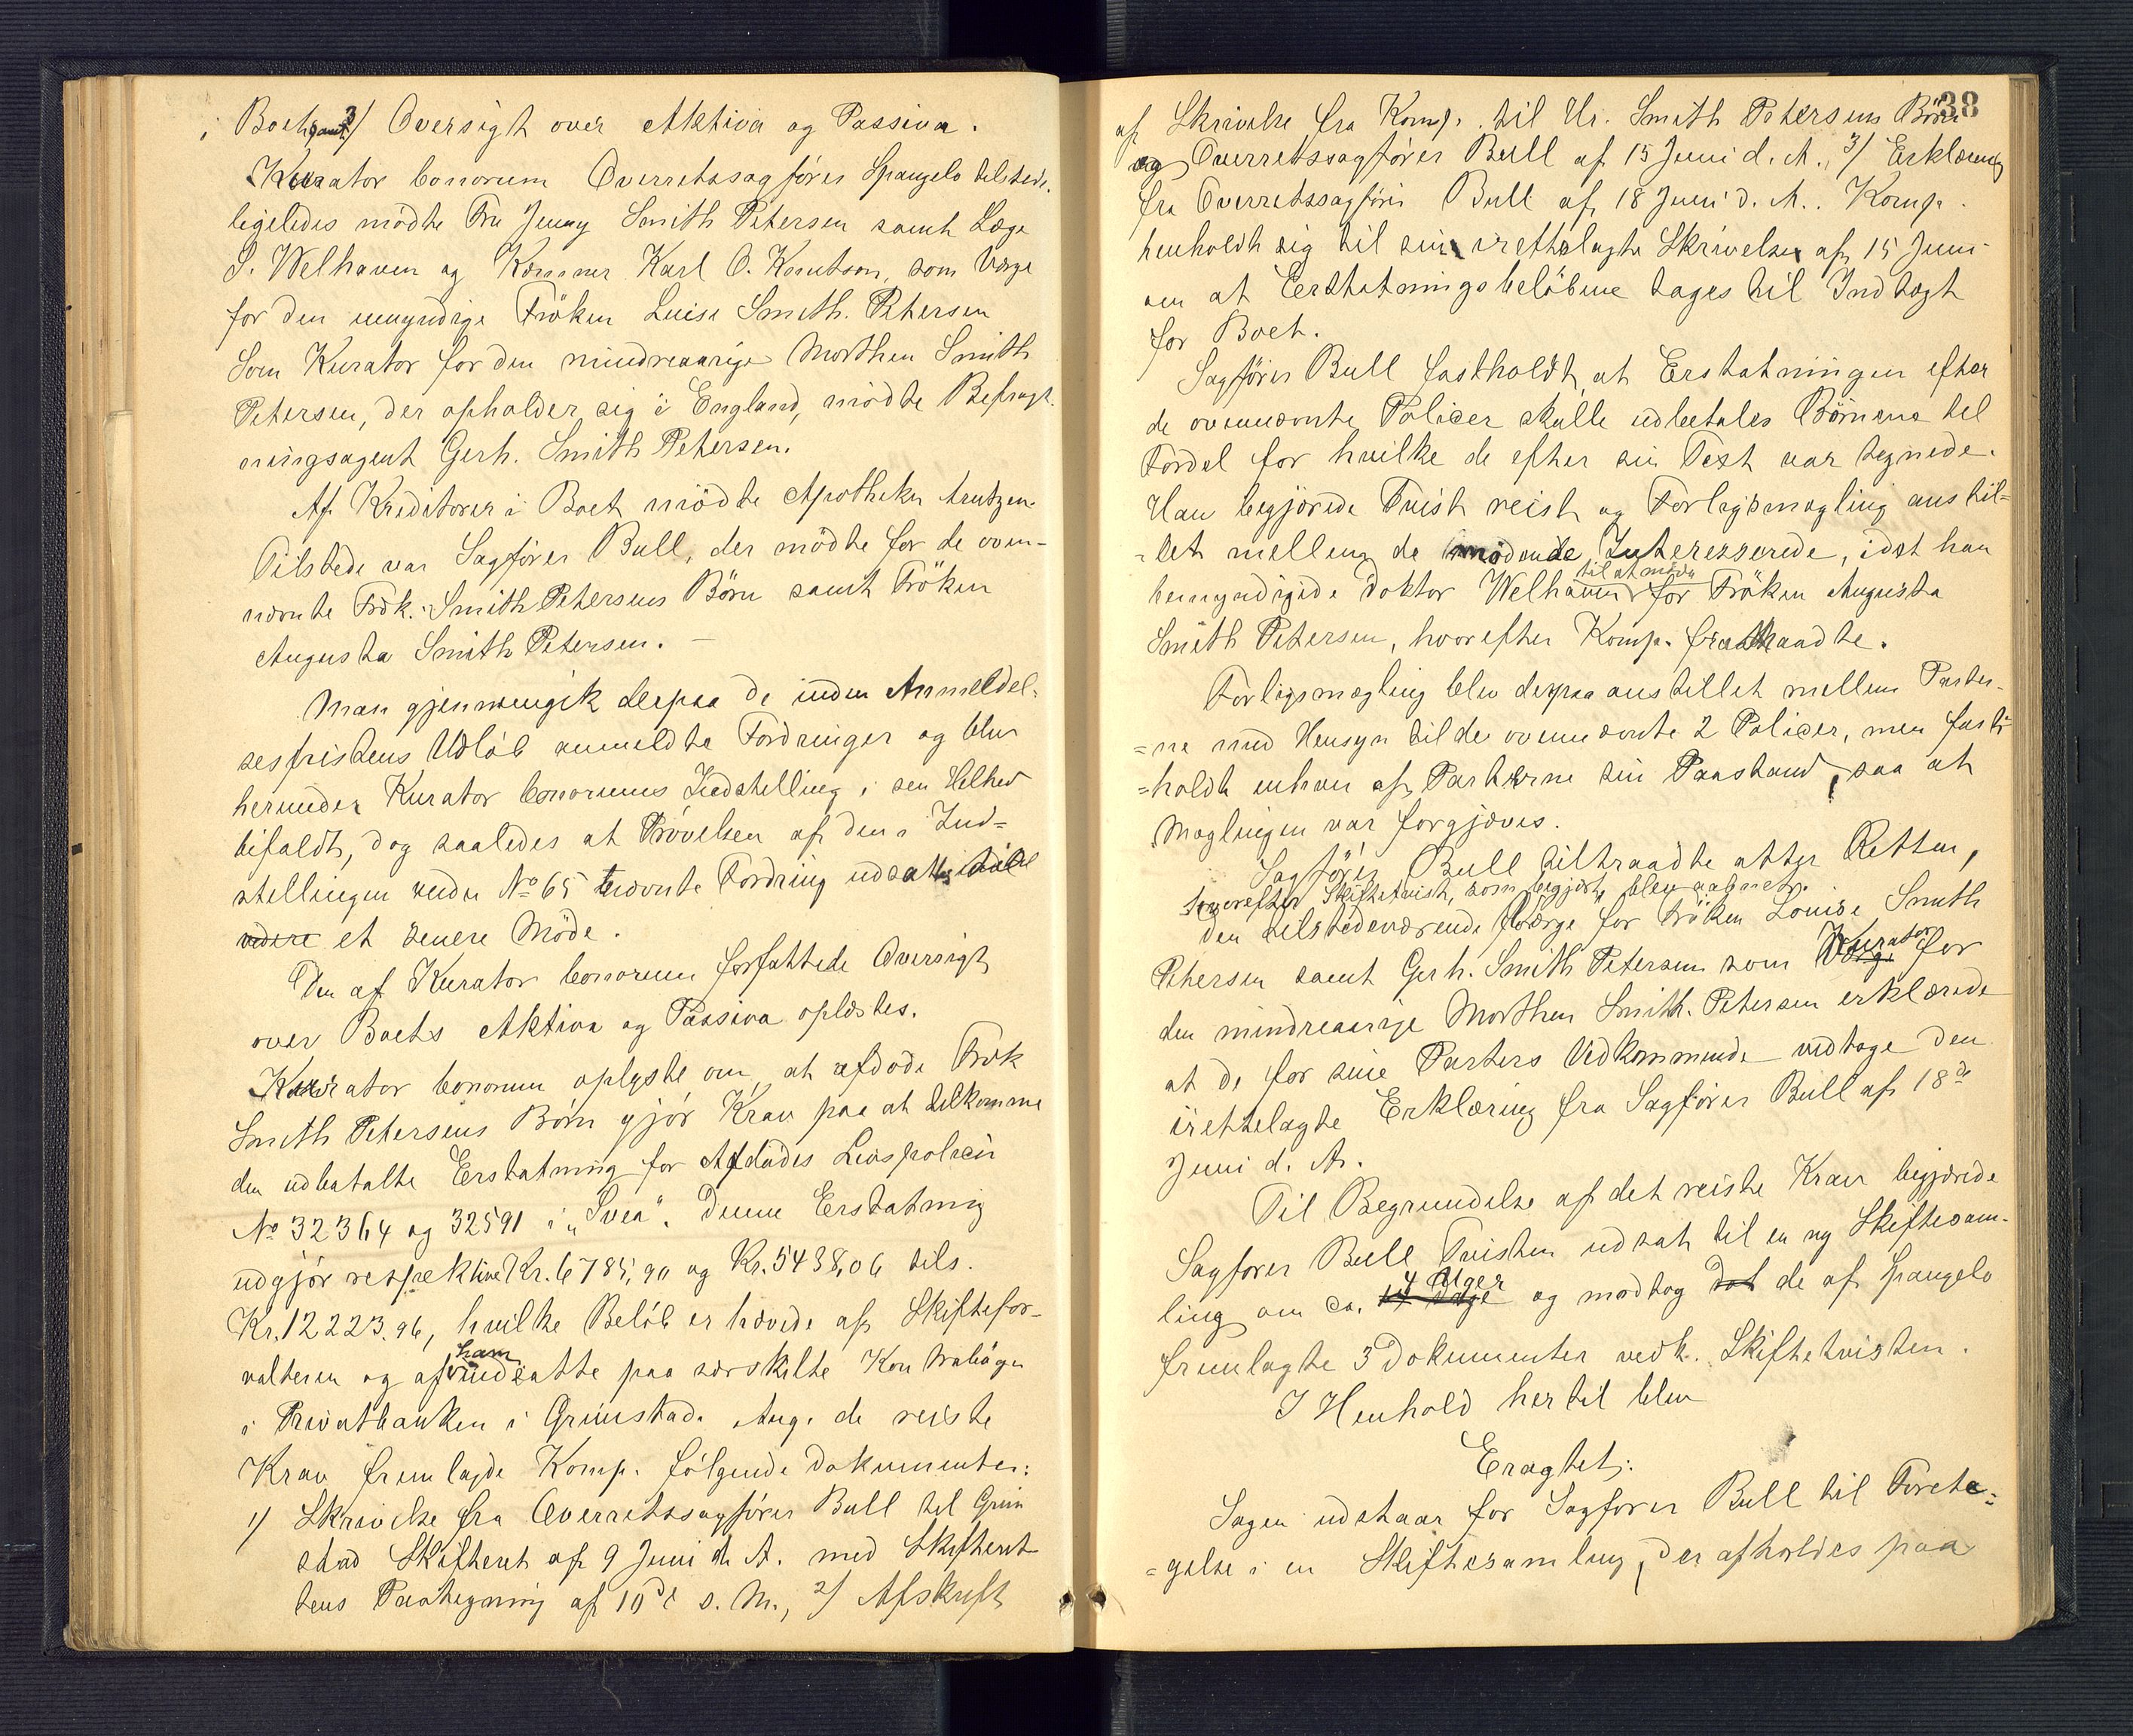 i Boet samt 3/ Oversigt over Aktiva og Passiva.
Kurator bonorum Overretssagfører Spangelo tilstede.
ligeledes mødte Fru Jenny Smith Petersen samt Læge
S. Welhaven og Kæmner Karl O. Knutson, som Værge
for den umyndige Frøken Luise Smith. Petersen
Som Kurator for den mindreaarige Morthen Smith
Petersen, der opholder sig i England, mødte Befragt-
ningsagent Gerh. Smith Petersen.
Af Kreditorer i Boet mødte Apotheker Arntzen
Tilstede var Sagfører Bull, der mødte for de oven-
nævnte Frdk. Smith Petersens Börn samt Fröken
Augusta Smith Petersen. —
Man gjennemgik derpaa de inden Anmeldel-
sesfristens Udløb anmeldte Fordringer og blev
herunder Kurator bonorums Indstilling i sin Helhed
bifaldt, dog saaledes at Prøvelsen af den i Ind=
stillingen under No 65 nævnte Fordring udsattes til
videre et senere Møde.
Den af Kurator bonorum forfattede Oversigt
over Boets Aktiva og Passiva oplæstes.
Kurator bonorum oplyste om, at afdøde Frdk
Smith Petersens Børn gjør Krav paa at tilkomme
den udbetalte Erstatning for Afdødes Livspolicer
No 32364 og 32591 i "Svea". Denne Erstatning
udgjør respektive Kr. 6785,90 og Kr. 5438,06 tils.
Kr. 12223.96, hvilke Beløb er hævede af Skiftefor-
valteren og af ham indsatte paa særskilte Kontrabøger
i Privatbanken i Grimstad. Ang. de reiste
Krav fremlagde Komp. følgende Dokumenter:
1/ Skrivelse fra Overretssagfører Bull til Grim
stad Skifteret af 9 Juni d. A. med Skifteret
tens Paategning af 10de s. M., 2/ Afskrift
38
af Skrivelse fra Komp. til Hr. Smith Petersens Börn
og Overretssagfører Bull af 15 Juni d. A., 3/ Erklæring
fra Overretssagfører Bull af 18 Juni d. A. Komp.
henholdt sig til sin irettelagte Skrivelse af 15 Juni
om at Erstatningsbeløbene tages til Indtægt
for Boet.
Sagfører Bull fastholdt, at Erstatningen efter
de ovennævnte Policer skulle udbetales Börnene til
Fordel for hvilke de efter sin Text var tegnede.
Han begjærede Tvist reist og Forligsmægling anstil-
-let mellem de mødende Interesserede, idet han
bemyndigede Doktor Welhaven til at møde for Frøken Augusta
Smith Petersen, hvorefter Komp. fratraadte.
Forligsmægling blev derpaa anstillet mellem Parter-
=ne med Hensyn til de ovennævnte 2 Policer, men fast-
=holdt enhver af Parterne sin Paastand, saa at
Mæglingen var forgjæves.
Sagfører Bull tiltraadte atter Retten,
hvorefter Skiftetvist, som begjært, blev aabnet.
den tilstedeværende Værge for Frøken Louise Smith
Petersen samt Gerh. Smith Petersen som Værge Kurator for
den mindreaarige Morthen Smith. Petersen erklærede
at de for sine Parters Vedkommende vedtage den
irettelagte Erklæring fra Sagfører Bull af 18de
Juni d. A.
Til Begrundelse af det reiste Krav begjærede
Sagfører Bull Tvisten udsat til en ny Skiftesam-
ling om ca. 14 Dage 4 Uger og modtog det de af Spangelo
fremlagte 3 Dokumenter vedk. Skiftetvisten.
I Henhold hertil blev
Eragtet:
Sagen udstaar for Sagfører Bull til Foreta=
=gelse i en Skiftesamling, der afholdes paa